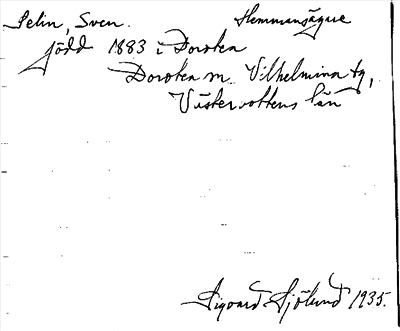 Selin, Sven. Hemmansägare
född 1883 i Dorotea
Dorotea m. Vilhelmina tg,
Västerbottens län
Sigvard Sjölund 1935.